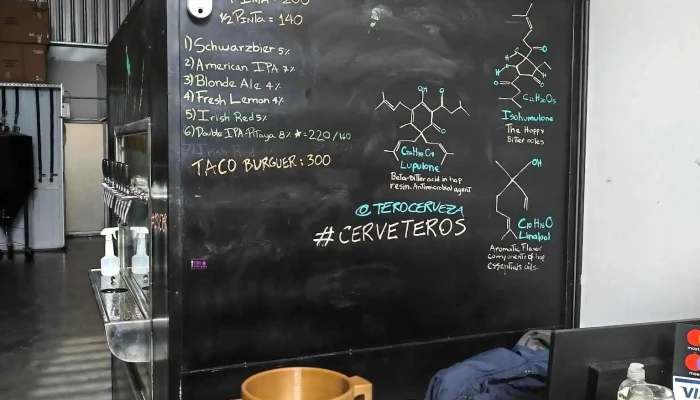 PINTA = 200
1/2 PINTA = 140
1) Schwarzbier 5%
2) American IPA 7%
3) Blonde Ale 4%
4) Fresh Lemon 4%
5) Irish Red 5%
6) Double IPA-Pitaya 8% * = 220/160
7) Irish Red
TACO BURGUER: 300
OH
O
Lupulone
Beta-Bitter acid in hop
resin. Antimicrobial agent
@TEROCERVEZA
#CERVETEROS
O
Isohumulone
The Hoppy
Bitter notes
OH
C10H18O
Linalool
Aromatic Flavor
components of hop
essentials oils.